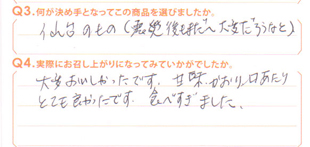 Q3.何が決め手となってこの商品を選びましたか。
仙台のもの(震災後もまだ大変だろうなと)
Q4.実際にお召し上がりになってみていかがでしたか。
大変おいしかったです。甘味、かおり、口あたり
とても良かったです。食べすぎました。